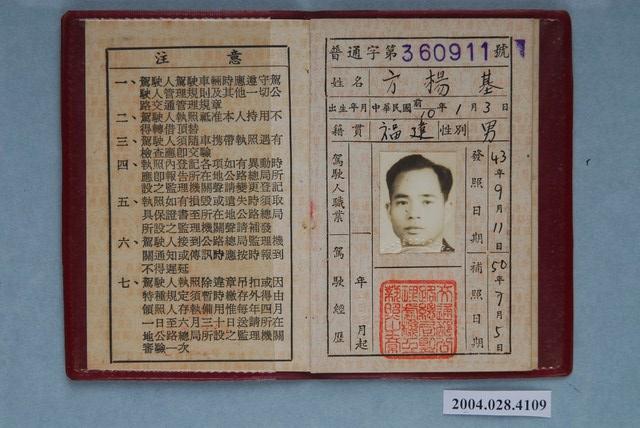 注意
一、駕駛人駕駛車輛時應遵守駕
駛人管理規則及其他一切公
路交通管理規章
二、駕駛人執照祗准本人持用不
得轉借頂替
三、駕駛人須隨車携帶執照遇有
檢查應卽交驗
四、執照內登記各項如有異動時
應卽報告所在地公路總局所
設之監理機關聲請變更登記
五、執照如有損毀或遺失時須取
具保證書向所在地公路總局
所設之監理機關聲請補發
六、駕駛人接到公路總局監理機
關通知或傳訊時應按時報到
不得遲延
七、駕駛人執照除違章吊扣或因
特種規定須暫時繳存外得由
領照人存執備用惟每年四月
一日至六月三十日送請所在
地公路總局所設之監理機關
審驗一次
普通字第360911號
姓名 方楊基
出生年月中華民國前10年1月3日
籍貫 福建 性別 男
駕駛人職業
駕駛經歷
年
月起
發照日期
43年9月11日
補照日期
50年7月5日
2004.028.4109